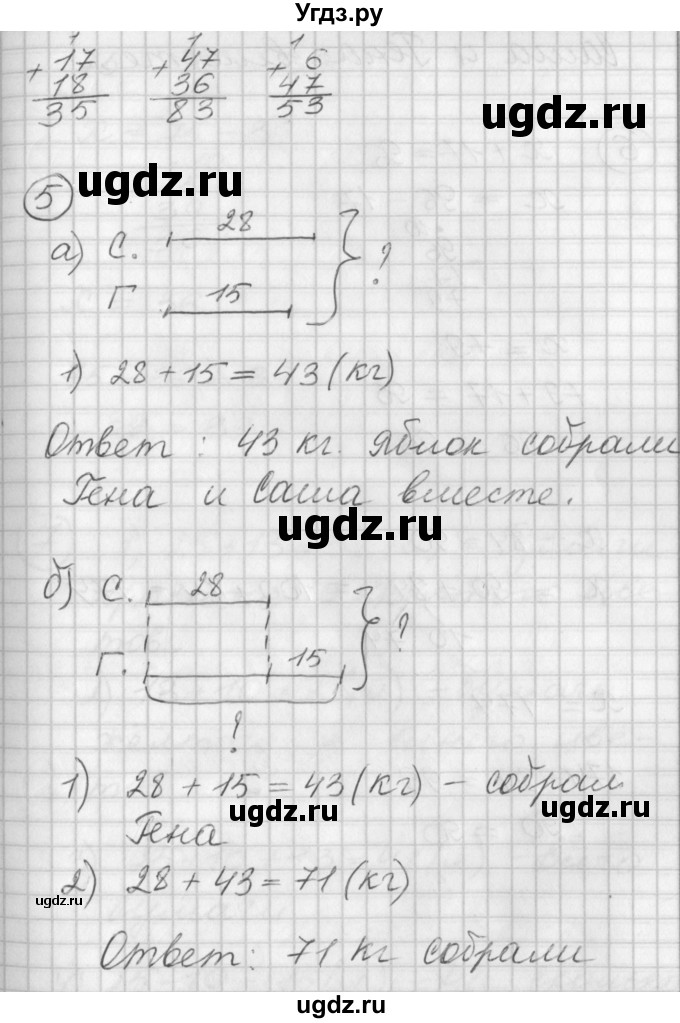 Угдз.ру
1 1 1
+ 17 + 47 + 6
18 36 47
35 83 53
ugdz.ru
5 ugdz.ru
а) С. 28
?
Г 15
1) 28 + 15 = 43 (кг)
Ответ : 43 кг. яблок собрали
Гена и Саша вместе.
ugdz.ru
б) С. 28
?
Г. 15
?
1) 28 + 15 = 43 (кг) – собрал
ugdz.ru ugdz.ru
Гена
2) 28 + 43 = 71 (кг)
ugdz.ru ugdz.ru
Ответ: 71 кг собрали
ugdz.ru